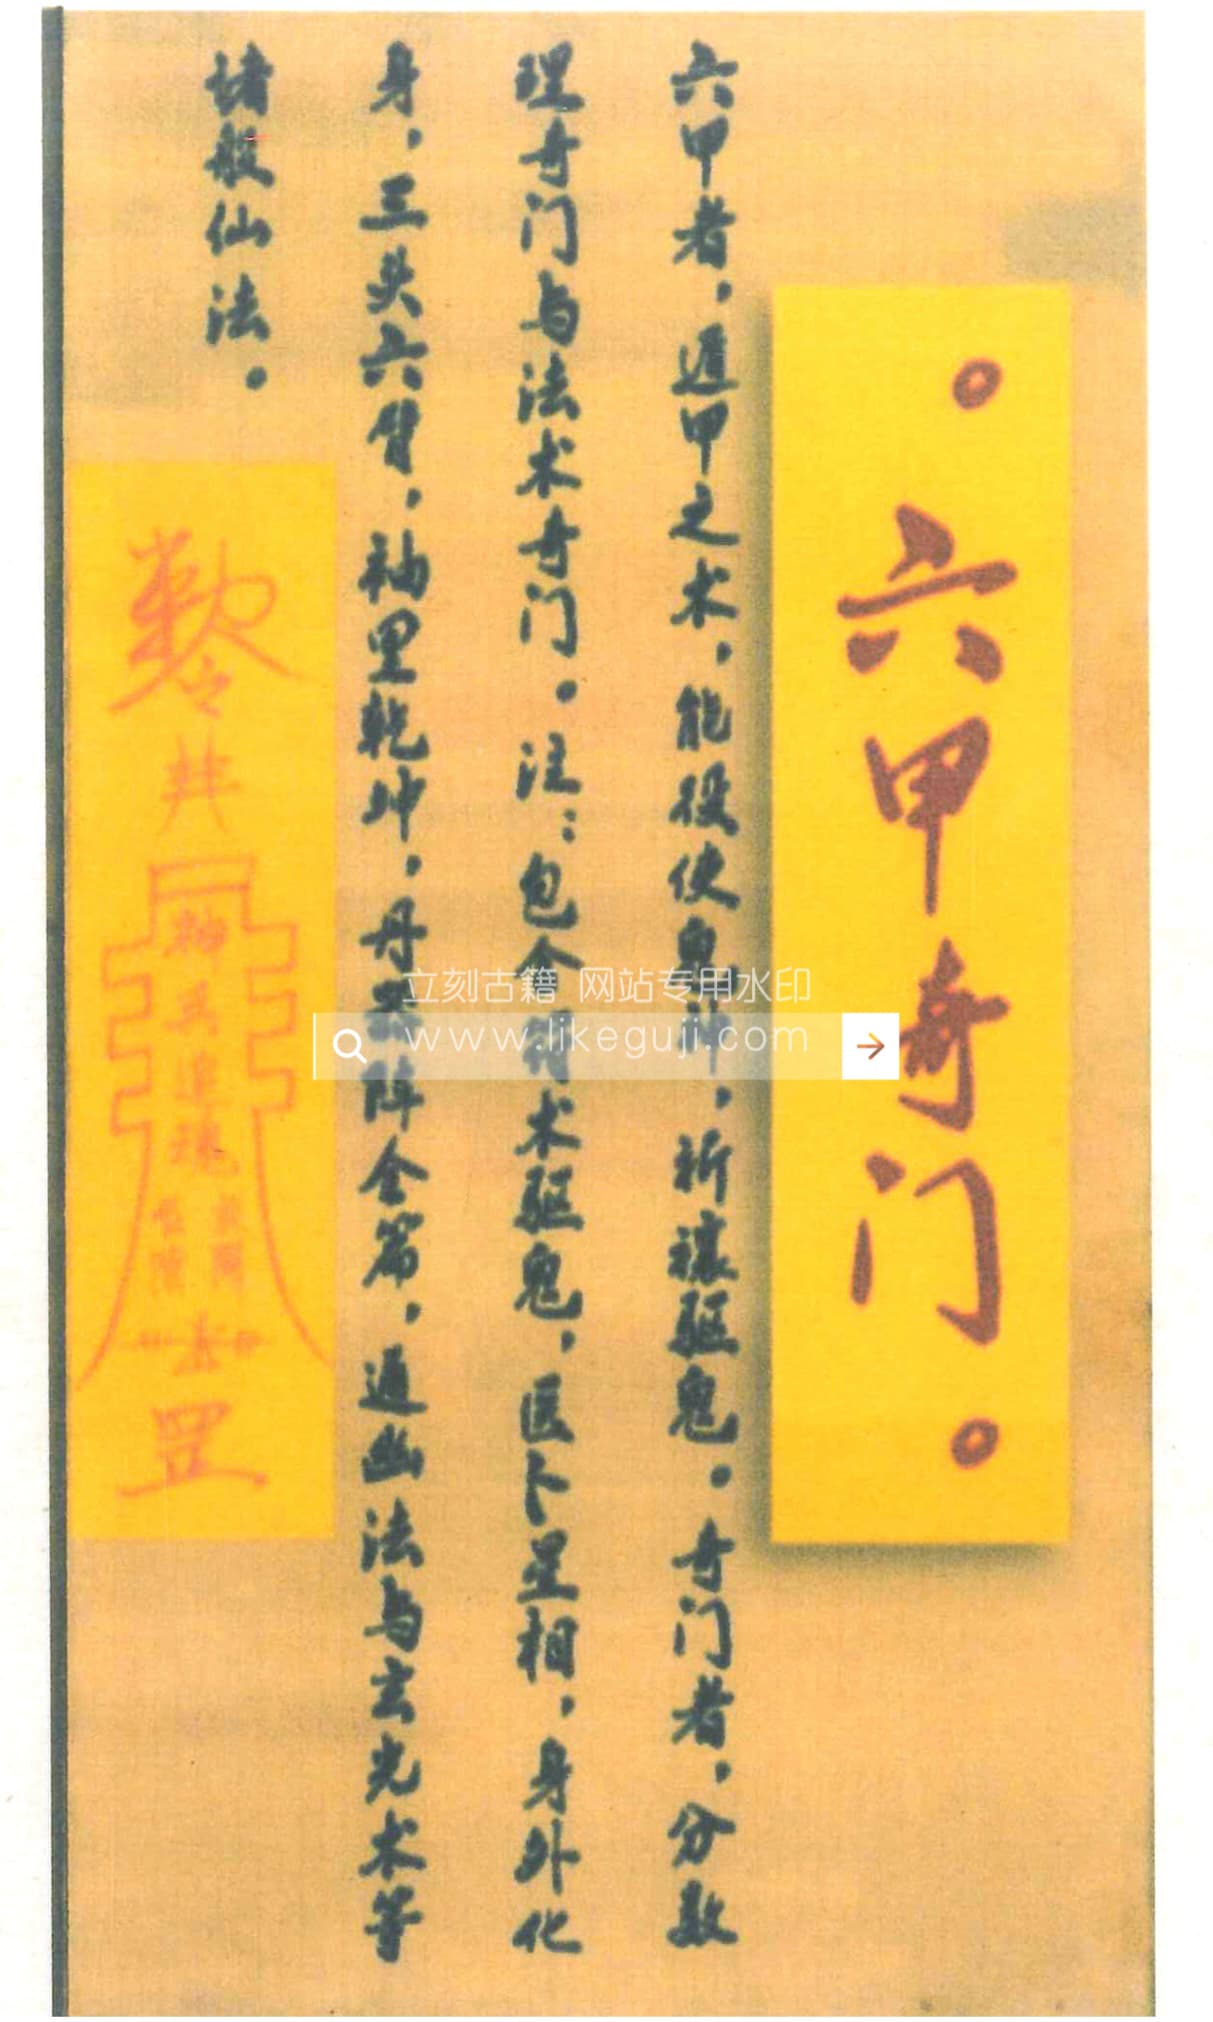 。六甲奇门。
六甲者，遁甲之术，能役使鬼神，祈禳驱鬼。奇门者，分数
理奇门与法术奇门。注：包含符术驱鬼，医卜星相，身外化
身，三头六臂，袖里乾坤，丹 阵全篇，通幽法与玄光术等
诸般仙法。
井
神兵追魂
罡
立刻古籍 网站专用水印
www.likeguji.com